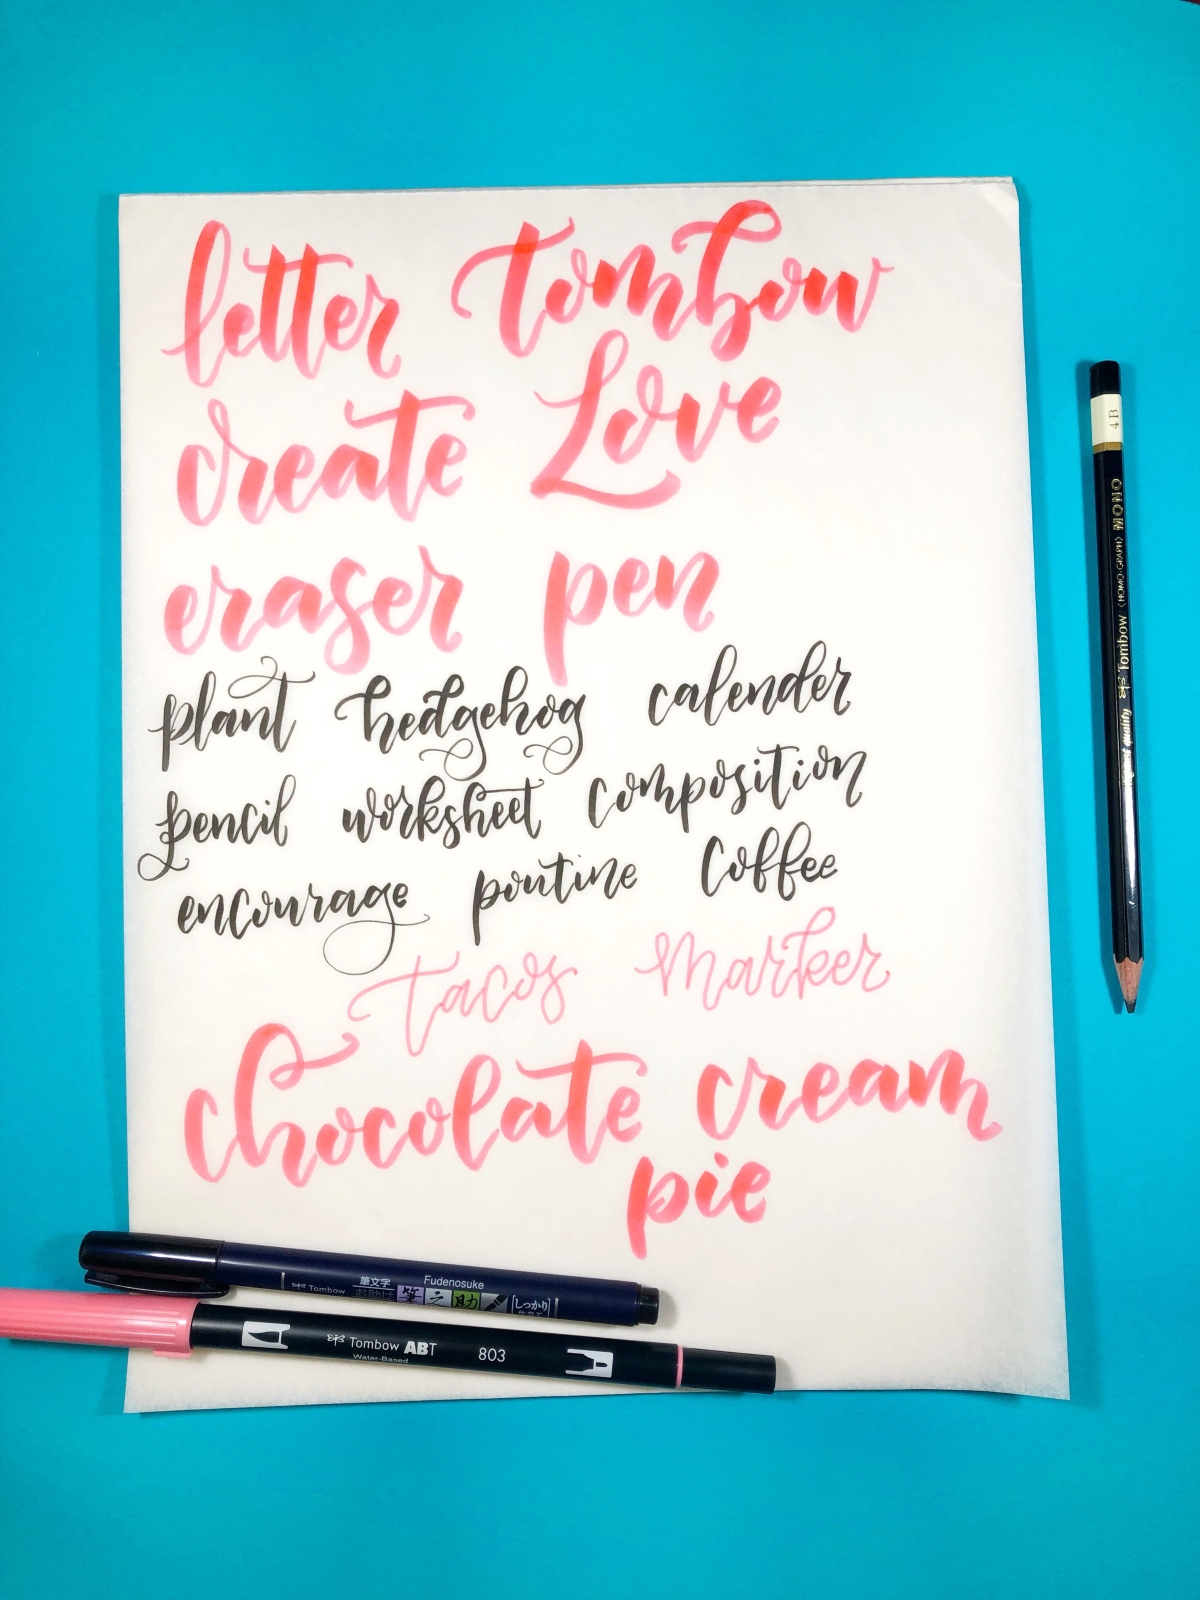 letter tombow
create Love
eraser pen
plant hedgehog calender
pencil worksheet composition
encourage poutine Coffee
tacos marker
chocolate cream
pie
4B
MONO
<HOMO-GRAPH>
Tombow
quality
Fudenosuke
Tombow 筆文字 筆之助 しっかり
お助け 仕立て
Tombow ABT 803
Water-Based